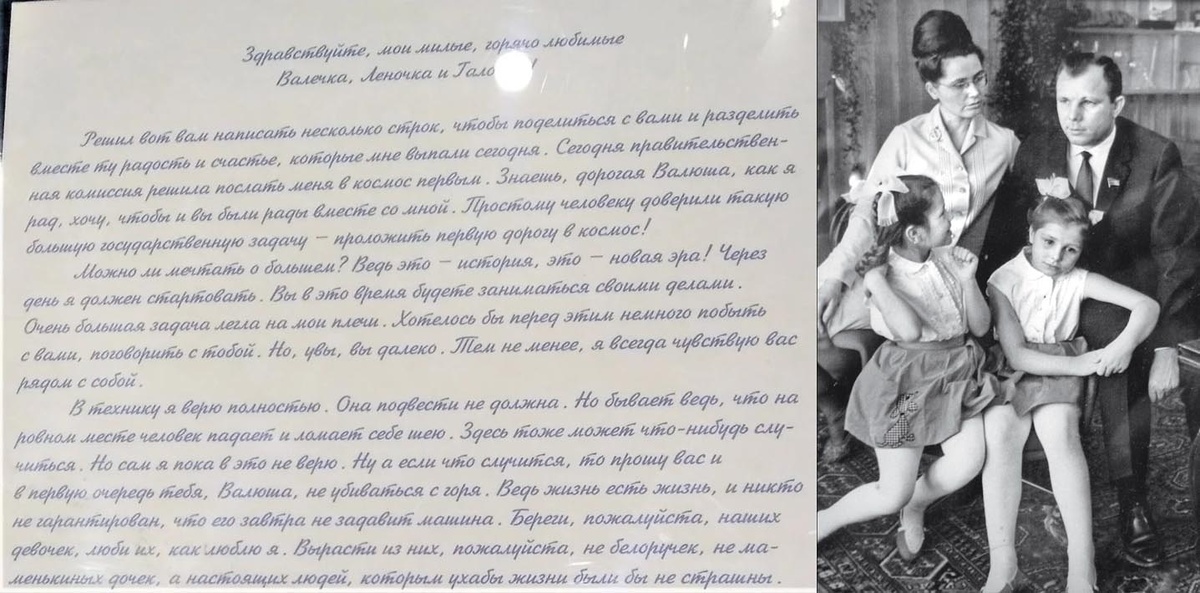 Здравствуйте, мои милые, горячо любимые
Валечка, Леночка и !
Решил вот вам написать несколько строк, чтобы поделиться с вами и разделить
вместе ту радость и счастье, которые мне выпали сегодня. Сегодня правительствен-
ная комиссия решила послать меня в космос первым. Знаешь, дорогая Валюша, как я
рад, хочу, чтобы и вы были рады вместе со мной. Простому человеку доверили такую
большую государственную задачу – проложить первую дорогу в космос!
Можно ли мечтать о большем? Ведь это – история, это – новая эра! Через
день я должен стартовать. Вы в это время будете заниматься своими делами.
Очень большая задача легла на мои плечи. Хотелось бы перед этим немного побыть
с вами, поговорить с тобой. Но, увы, вы далеко. Тем не менее, я всегда чувствую вас
рядом с собой.
В технику я верю полностью. Она подвести не должна. Но бывает ведь, что на
ровном месте человек падает и ломает себе шею. Здесь тоже может что-нибудь слу-
читься. Но сам я пока в это не верю. Ну а если что случится, то прошу вас и
в первую очередь тебя, Валюша, не убиваться с горя. Ведь жизнь есть жизнь, и никто
не гарантирован, что его завтра не задавит машина. Береги, пожалуйста, наших
девочек, люби их, как люблю я. Вырасти из них, пожалуйста, не белоручек, не ма-
менькиных дочек, а настоящих людей, которым ухабы жизни были бы не страшны.